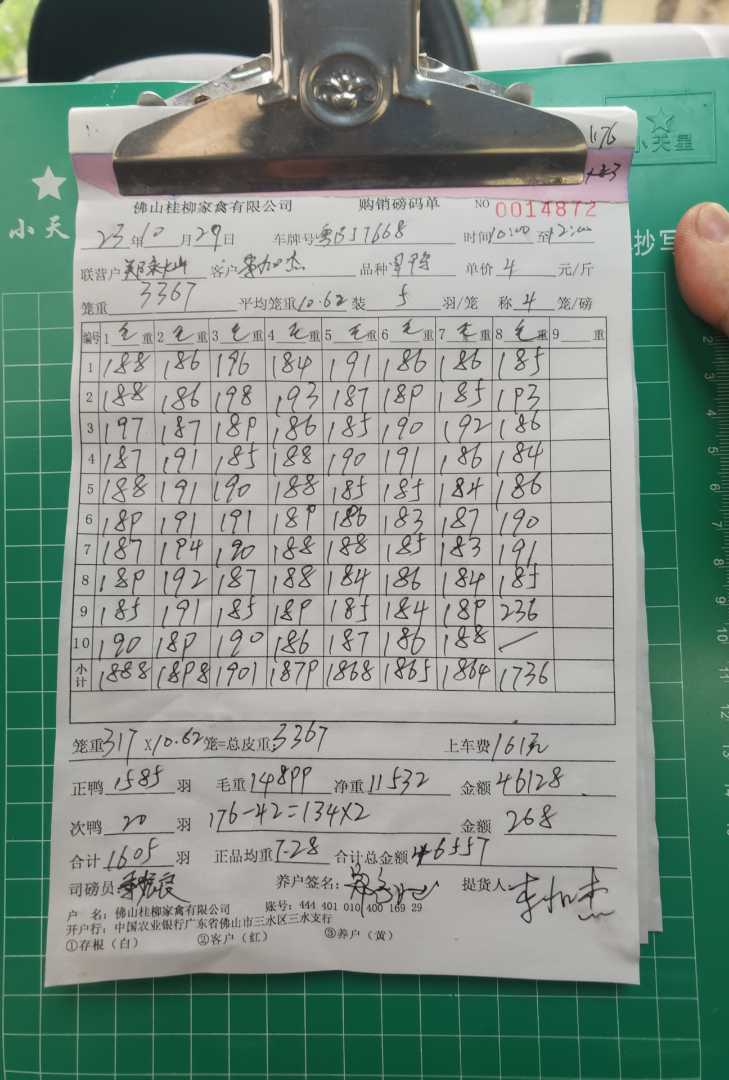 1176
小天星
小天
抄写
佛山桂柳家禽有限公司 购销磅码单 NO 0014872
23年10月29日 车牌号 粤B57668 时间10:00至12:00
联营户 客户 品种 单价 4 元/斤
笼重 3367 平均笼重10.62 装 5 羽/笼 称 4 笼/磅
编号 1毛重 2毛重 3毛重 4毛重 5毛重 6毛重 7毛重 8毛重 9重
1 188 186 196 184 191 186 186 185
2 188 186 198 193 187 189 185 193
3 197 187 189 186 185 190 192 186
4 187 191 185 188 190 191 186 184
5 188 191 190 188 185 185 184 186
6 189 191 191 189 186 183 187 190
7 187 194 190 188 188 185 183 191
8 189 192 187 188 184 186 184 185
9 185 191 185 189 185 184 189 236
10 190 189 190 186 187 186 188 /
小计 1888 1898 1901 1879 1868 1865 1864 1736
笼重317×10.62笼=总皮重:3367 上车费161元
正鸭 1585 羽 毛重14899 净重11532 金额46128
次鸭 20 羽 176-42=134×2 金额 268
合计1605 羽 正品均重7.28 合计总金额46557
司磅员: 养户签名: 提货人
户 名: 佛山桂柳家禽有限公司 账号: 444 401 010 400 169 29
开户行: 中国农业银行广东省佛山市三水区三水支行
①存根（白） ②客户（红） ③养户（黄）